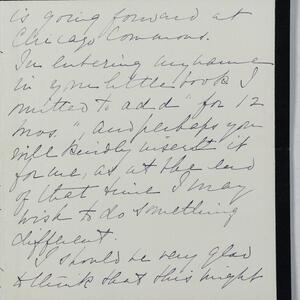 is going forward at
Chicago Commons.
In entering my name
in your little book I
omitted to add "for 12
mos.", and perhaps you
will kindly insert it
for me, as at the end
of that time I may
wish to do something
different.
I should be very glad
to think that this might